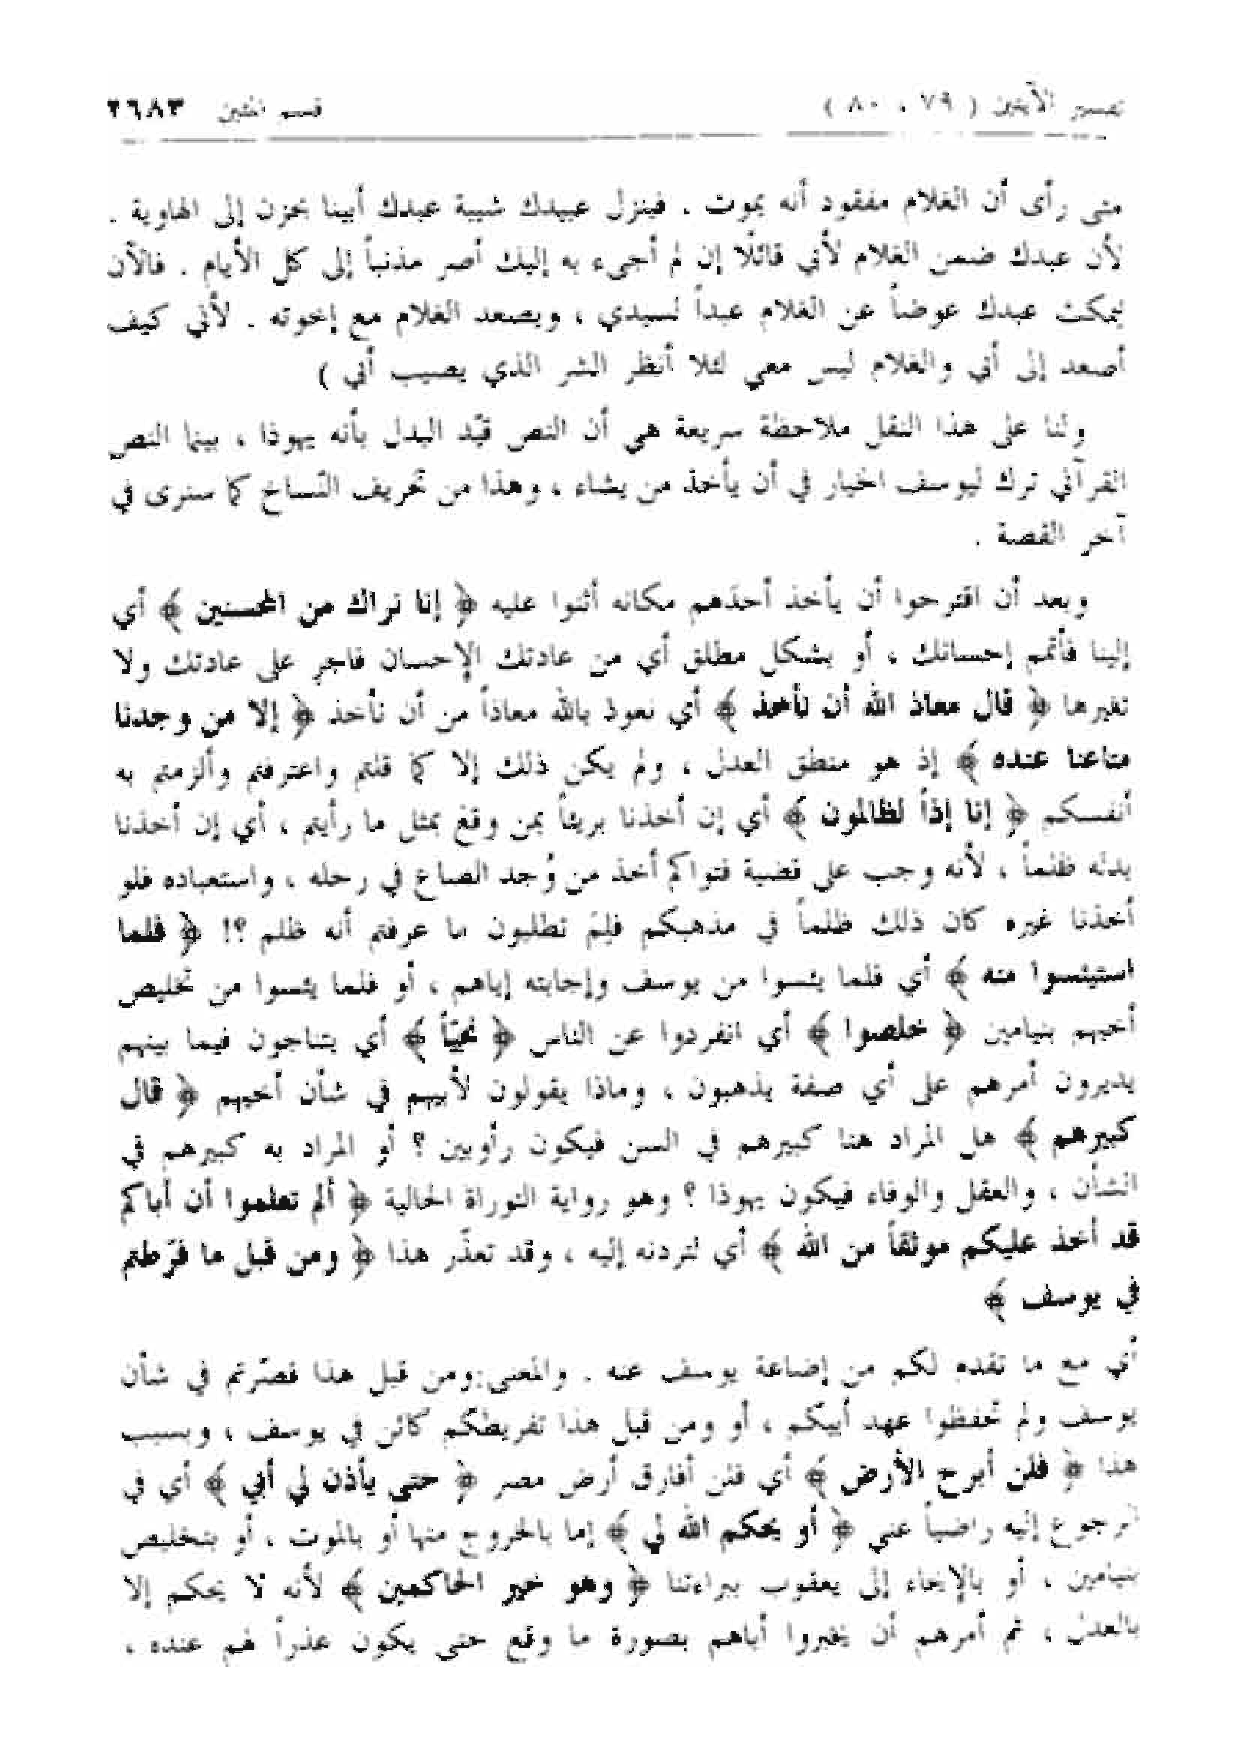 تفسير الآيتين ( ٧٩ ، ٨٠ ) قسم المئين ٢٦٨٣
متى رأى أن الغلام مفقود أنه يموت . فينزل عبيدك شيبة عبدك أبينا بحزن إلى الهاوية .
لأن عبدك ضمن الغلام لأبي قائلًا إن لم أجىء به إليك أصر مذنباً إلى كل الأيام . فالآن
ليمكث عبدك عوضاً عن الغلام عبداً لسيدي ، ويصعد الغلام مع إخوته . لأني كيف
أصعد إلى أبي والغلام ليس معي لئلا أنظر الشر الذي يصيب أبي )
ولنا على هذا النقل ملاحظة سريعة هي أن النص قيّد البدل بأنه يهوذا ، بينما النص
القرآني ترك ليوسف الخيار في أن يأخذ من يشاء ، وهذا من تحريف النّساخ كما سنرى في
آخر القصة .
وبعد أن اقترحوا أن يأخذ أحدَهم مكانه أثنوا عليه ﴿ إنا نراك من المحسنين ﴾ أي
إلينا فأتمم إحسانك ، أو بشكل مطلق أي من عادتك الإحسان فاجرِ على عادتك ولا
تغيرها ﴿ قال معاذ الله أن نأخذ ﴾ أي نعوذ بالله معاذاً من أن نأخذ ﴿ إلا من وجدنا
متاعنا عنده ﴾ إذ هو منطق العدل ، ولم يكن ذلك إلا كما قلتم واعترفتم وألزمتم به
أنفسكم ﴿ إنا إذاً لظالمون ﴾ أي إن أخذنا بريئاً بمن وقع بمثل ما رأيتم ، أي إن أخذنا
بدله ظلماً ، لأنه وجب على قضية فتواكم أخذ من وُجد الصاع في رحله ، واستعباده فلو
أخذنا غيره كان ذلك ظلماً في مذهبكم فلِمَ تطلبون ما عرفتم أنه ظلم ؟! ﴿ فلما
استيئسوا منه ﴾ أي فلما يئسوا من يوسف وإجابته إياهم ، أو فلما يئسوا من تخليص
أخيهم بنيامين ﴿ خلصوا ﴾ أي انفردوا عن الناس ﴿ نجيّاً ﴾ أي يتناجون فيما بينهم
يديرون أمرهم على أي صفة يذهبون ، وماذا يقولون لأبيهم في شأن أخيهم ﴿ قال
كبيرهم ﴾ هل المراد هنا كبيرهم في السن فيكون رأوبين ؟ أو المراد به كبيرهم في
الشأن ، والعقل والوفاء فيكون يهوذا ؟ وهو رواية التوراة الحالية ﴿ ألم تعلموا أن أباكم
قد أخذ عليكم موثقاً من الله ﴾ أي لتردنه إليه ، وقد تعذّر هذا ﴿ ومن قبل ما فرّطتم
في يوسف ﴾
أي مع ما تقدم لكم من إضاعة يوسف عنه . والمعنى : ومن قبل هذا قصّرتم في شأن
يوسف ولم تحفظوا عهد أبيكم ، أو ومن قبل هذا تفريطكم كائن في يوسف ، وبسبب
هذا ﴿ فلن أبرح الأرض ﴾ أي فلن أفارق أرض مصر ﴿ حتى يأذن لي أبي ﴾ أي في
الرجوع إليه راضياً عني ﴿ أو يحكم الله لي ﴾ إما بالخروج منها أو بالموت ، أو بتخليص
بنيامين ، أو بالإيحاء إلى يعقوب ببراءتنا ﴿ وهو خير الحاكمين ﴾ لأنه لا يحكم إلا
بالعدل ، ثم أمرهم أن يخبروا أباهم بصورة ما وقع حتى يكون عذراً لهم عنده ،